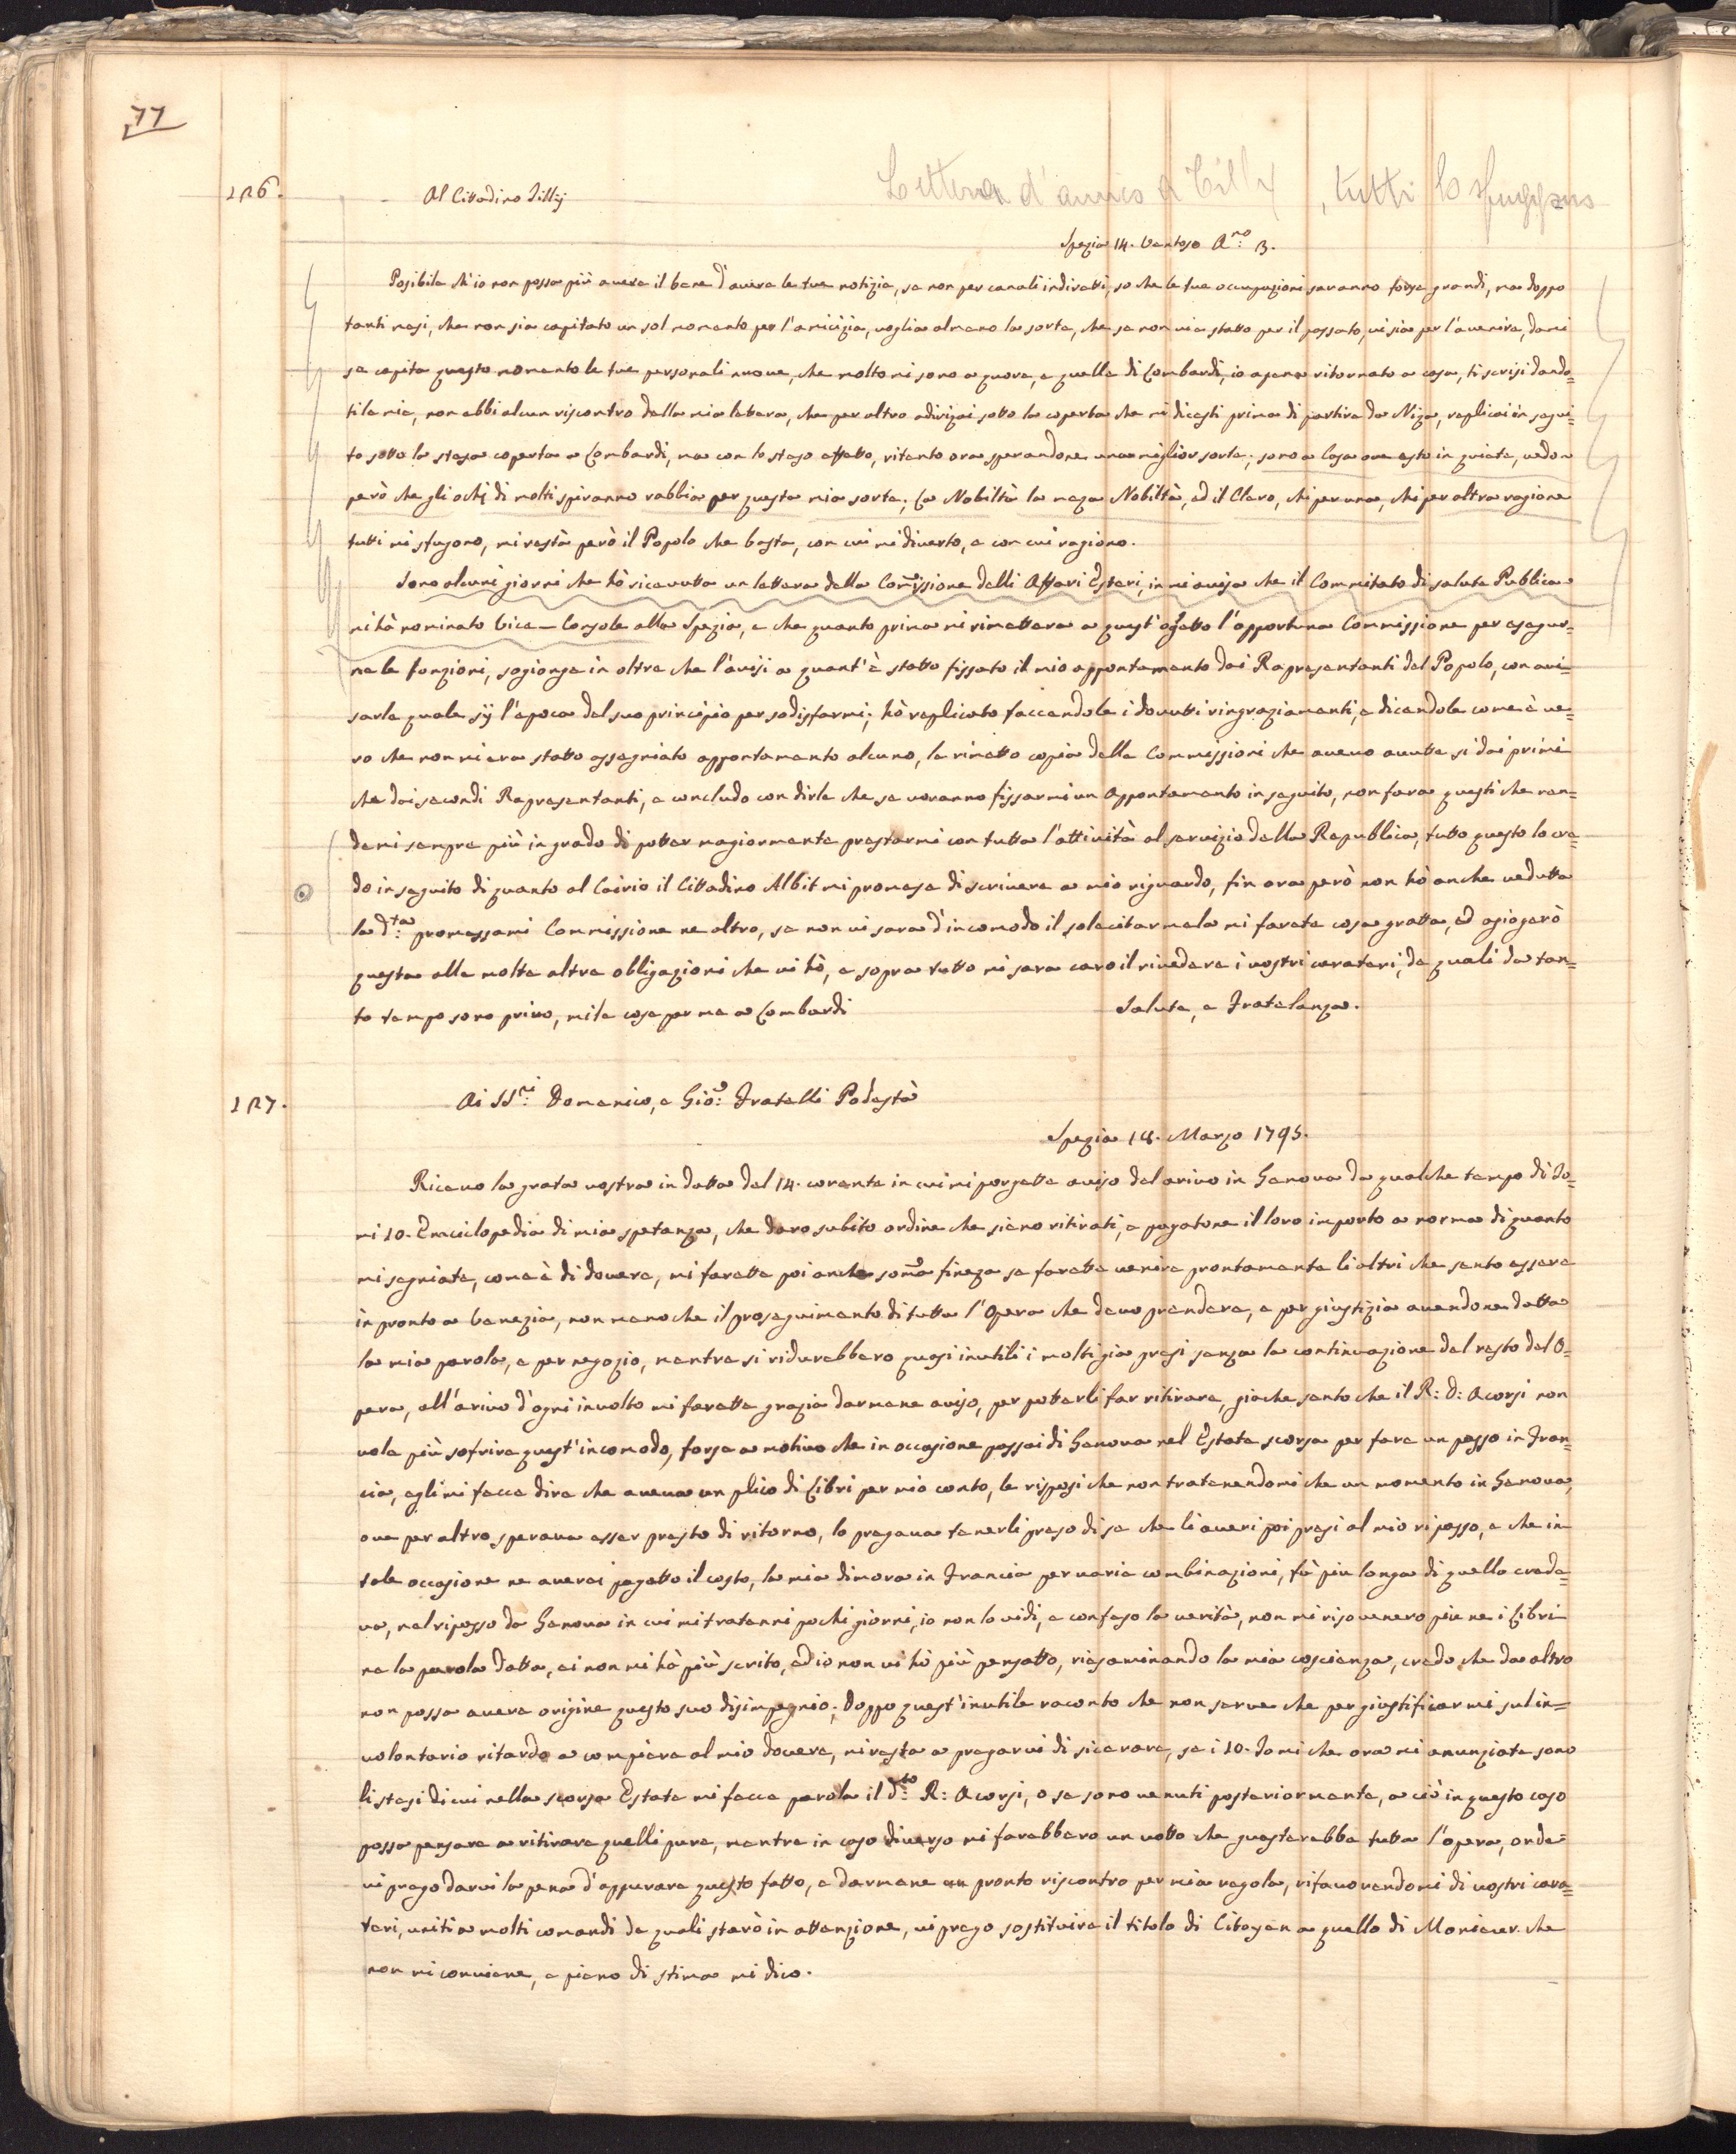 77
Lettera d'amico a Tilly, tutti lo sfuggono
126.
Al Cittadino Tillij
Spezia 14. Ventoso A.no 3.
Posibile ch'io non possa più avere il bene d'avere le tue notizie, se non per canali indireti, so che le tue occupazioni saranno forse grandi, ma doppo
tanti mesi, che non sia capitato un sol momento per l'amicizia, voglia almeno la sorte, che se non vi è statto per il passato, vi sia per l'avenire, dami
se capita questo momento le tue personali nuove, che molto mi sono a quore, e quelle di Lombardi, io apena ritornato a casa, ti scrisi dando=
ti le mie, non ebbi alcun riscontro della mia letera, che per altro adirizai sotto la coperta che mi dicesti prima di partire da Niza, replicai in segui=
to sotto la stesa coperta a Lombardi, ma con lo steso effetto, ritento ora sperandone una miglior sorte; sono a Casa ove esto in quiete, vedo
però che gli ochj di molti spiranno rabbia per questa mia sorte; La Nobiltà la meza Nobiltà, ed il Clero, chi per una, chi per altra ragione
tutti mi sfugono, mi restà però il Popolo che basta, con cui mi diverto, e con cui ragiono.
Sono alcuni giorni che hò ricevutta un lettera della Comissione delli Affari Esteri, in mi avisa che il Commitato di salute Publica
mi hà nominato Vice-Console alla Spezia, e che quanto prima mi rimettera a quest'ogetto l'opportuna Commissione per esegur=
ne le fonzioni, sogionge in oltre che l'avisi a quant'è statto fissato il mio appontamento dai Rapresentanti del Popolo, con avi=
sarle quale sij l'epoca del suo principio per sodisfarmi; hò replicato faccendole i dovutti ringraziamenti, e dicendole come è ve=
ro che non mi era statto assegniato appontamento alcuno, le rimetto copia delle Commissioni che avevo avutte si dai primi
che dai secondi Rapresentanti, e concludo con dirle che se voranno fissarmi un Appontamento in seguito, non fara questi che ren=
dermi sempre più in grado di potter magiormente prestarmi con tutta l'attività al servizio della Republica, tutto questo lo cre=
do in seguito di quanto al Cairio il Cittadino Albit mi promese di scrivere a mio riguardo, fin ora però non hò anche vedutta
la d.ta promessami Commissione ne altro, se non vi sara d'incomodo il solecitarmela mi farete cosa gratta, ed agiogerò
questa alle molte altre obligazioni che vi hò, e sopra tutto mi sara caro il rivedere i vostri carateri, de quali da tan=
to tempo sono privo, mile cose per me a Lombardi
Salute, e Fratelanza.
127.
Ai SS.ri Domenico, e Gio: Fratelli Podestà
Spezia 18. Marzo 1795.
Ricevo la grata vostra in datta del 14. corente in cui mi porgette aviso del arivo in Genova da qualche tempo di To=
mi 10. Enciclopedia di mia spetanza, che daro subito ordine che siano ritirati, e pagatone il loro importo a norma di quanto
mi segniate, come è di dovere, mi farette poi anche soma fineza se farette venire prontamente li altri che sento essere
in pronto a Venezia, non meno che il proseguimento di tutta l'Opera che devo prendere, e per giustizia avendone datta
la mia parola, e per negozio, mentre si ridurebbero quasi inutili i molti gia presi senza la continuazione del resto del O=
pera, all'arivo d'ogni involto mi farette grazia darmene aviso, per potterli far ritirare, gia che sento che il R: D: Acorsi non
vole più sofrire quest'incomodo, forse a motivo che in occasione passai di Genova nel Estate scorsa per fare un passo in Fran=
cia, egli mi fecce dire che aveva un plico di Libri per mio conto, le rispposi che non tratenendomi che un momento in Genova,
ove per altro sperava esser presto di ritorno, lo pregava tenerli preso di se che li averi poi presi al mio ripasso, e che in
tale occasione ne averei pagatto il costo, la mia dimora in Francia per varie combinazioni, fù più longa di quello crede=
va, nel ripasso da Genova in cui mi tratenni pochi giorni, io non lo vidi, e confeso la verità, non mi risovenero più ne i Libri
ne la parola datta, ei non mi hà più scrito, ed io non vi hò più pensatto, riesaminando la mia coscienza, credo che da altro
non possa avere origine questo suo disimpegnio; Doppo quest'inutile raconto che non serve che per giustificarmi sul in=
volontario ritardo a compiere al mio dovere, mi resta a pregarvi di sicerare, se i 10. Tomi che ora mi anunziate sono
li stesi di cui nella scorsa Estate mi fecce parola il d.to R: Acorsi, o se sono venuti posteriormente, a ciò in questo caso
possa pensare a ritirare quelli pure, mentre in caso diverso mi farebbero un votto che guasterebbe tutta l'opera, onde
vi prego darvi la pena d'appurare questo fatto, e darmene un pronto riscontro per mia regola, rifavorendomi di vostri cara=
teri, uniti a molti comandi de quali starò in attenzione, vi prego sostituire il titolo di Citoyen a quello di Monsieur che
non mi conviene, e pieno di stima mi dico.